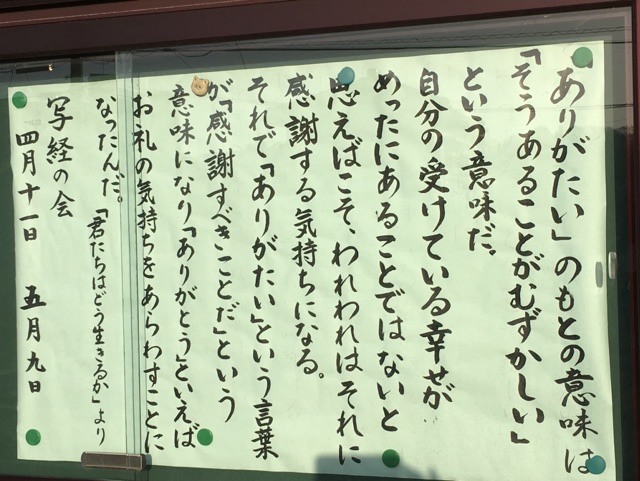 「ありがたい」のもとの意味は
「そうあることがむずかしい」
という意味だ。
自分の受けている幸せが
めったにあることではないと
思えばこそ、われわれはそれに
感謝する気持ちになる。
それで「ありがたい」という言葉
が「感謝すべきことだ」という
意味になり「ありがとう」といえば
お礼の気持ちをあらわすことに
なったんだ。
「君たちはどう生きるか」より
写経の会
四月十一日 五月九日